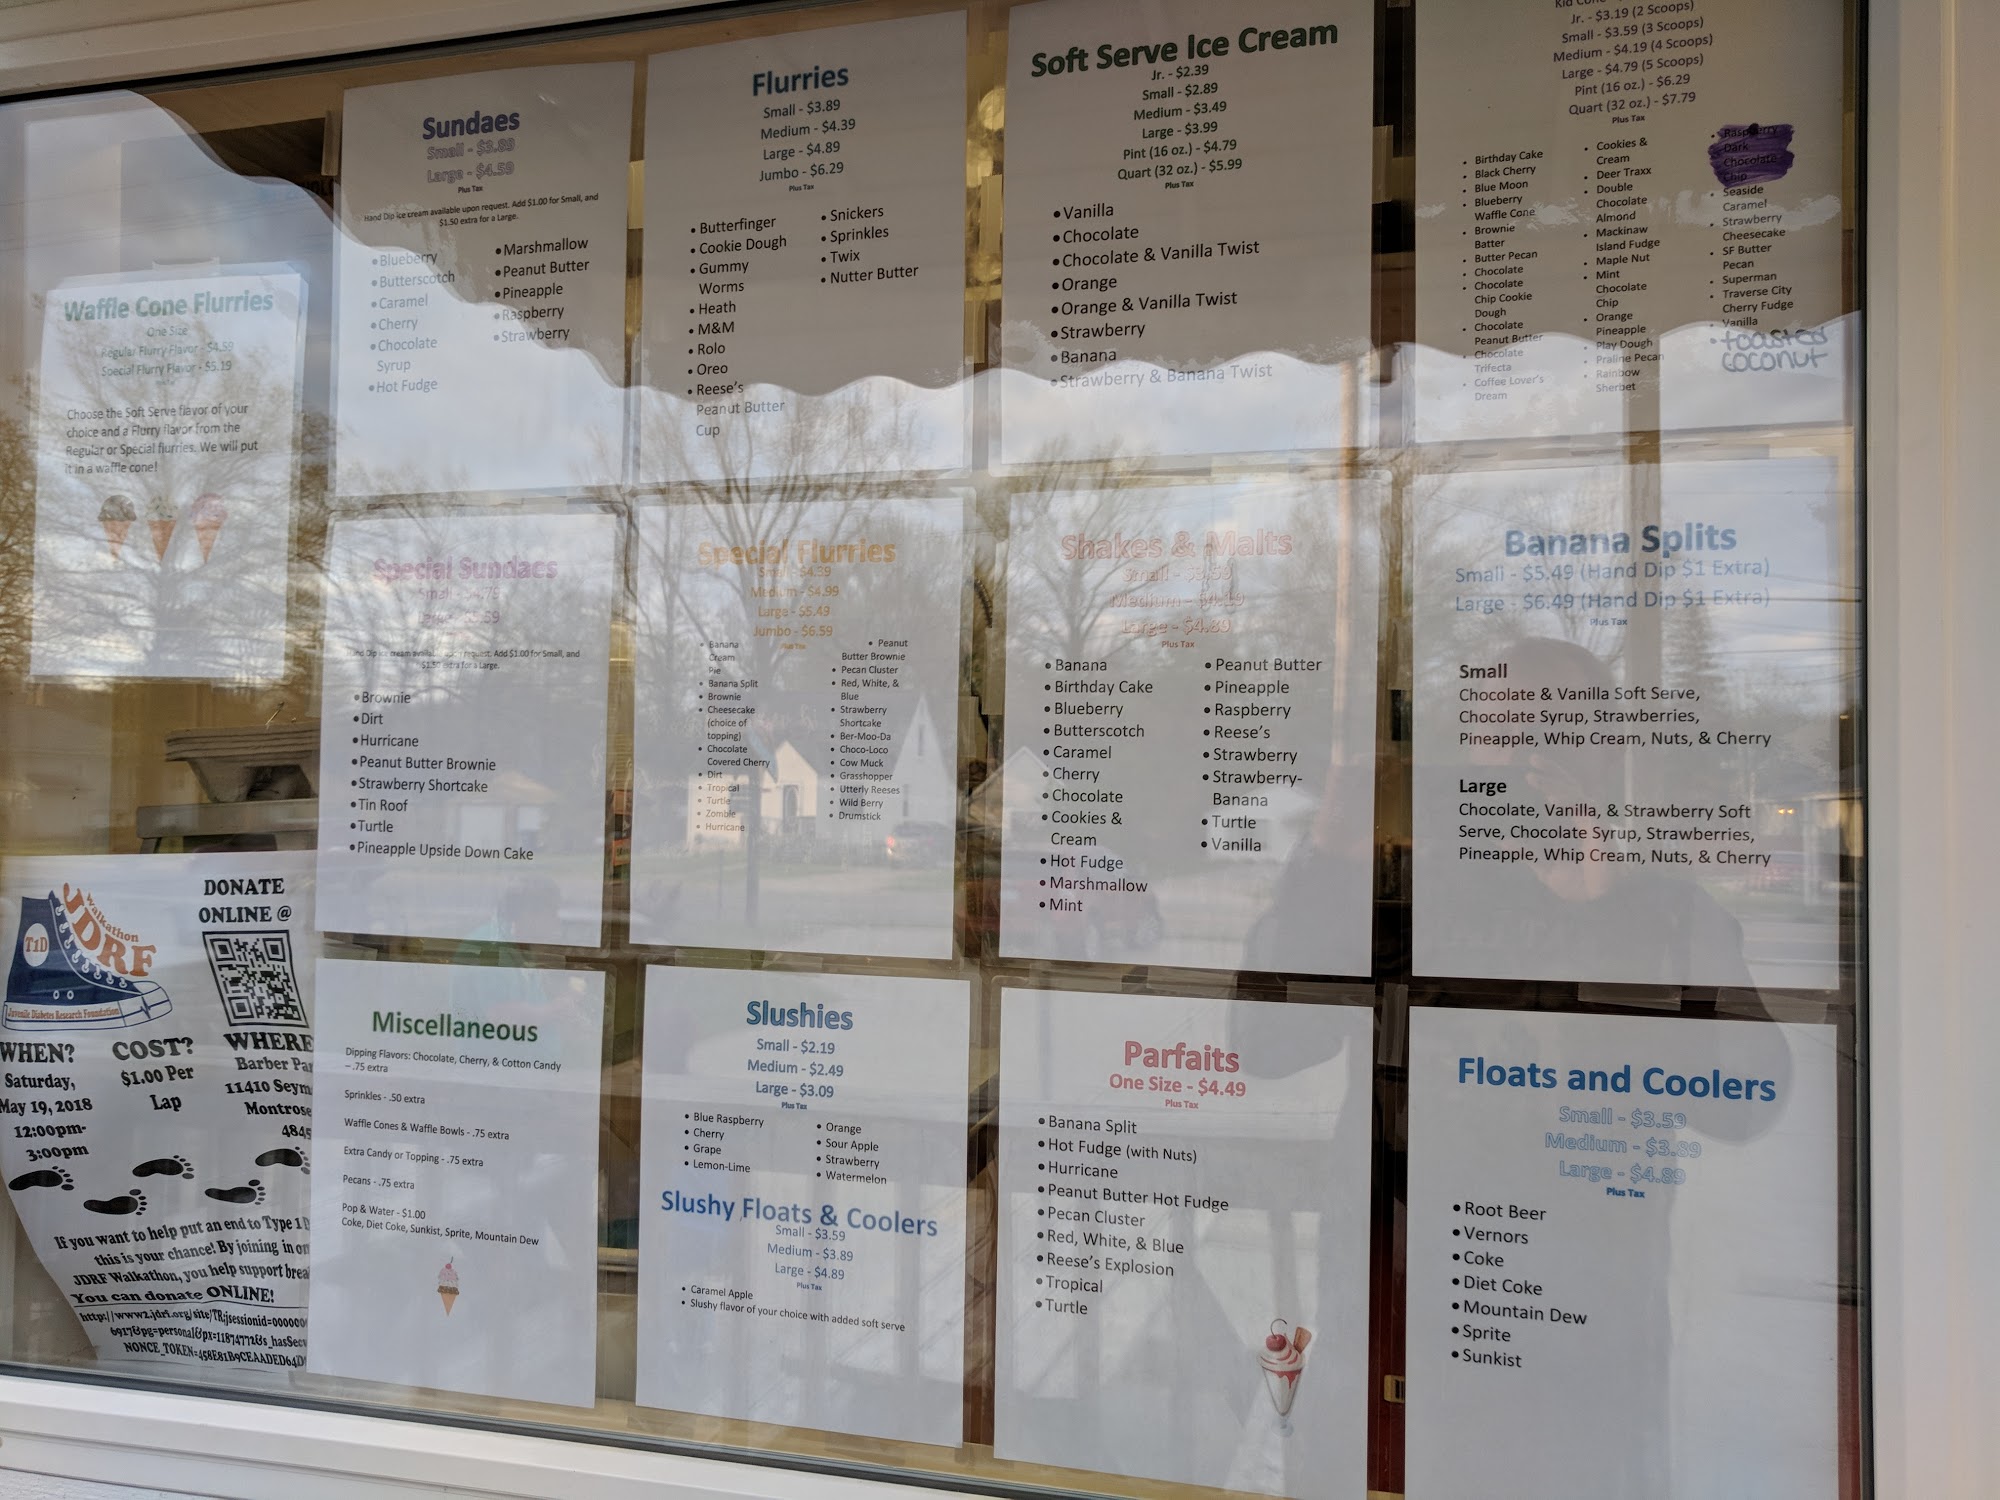 Waffle Cone Flurries
One Size
Regular Flurry Flavor - $4.59
Special Flurry Flavor - $5.19
Choose the Soft Serve flavor of your
choice and a Flurry flavor from the
Regular or Special flurries. We will put
it in a waffle cone!
Sundaes
Small - $3.89
Large - $4.59
Plus Tax
Hand Dip ice cream available upon request. Add $1.00 for Small, and
$1.50 extra for a Large.
• Blueberry
• Butterscotch
• Caramel
• Cherry
• Chocolate
Syrup
• Hot Fudge
• Marshmallow
• Peanut Butter
• Pineapple
• Raspberry
• Strawberry
Flurries
Small - $3.89
Medium - $4.39
Large - $4.89
Jumbo - $6.29
Plus Tax
• Butterfinger
• Cookie Dough
• Gummy
Worms
• Heath
• M&M
• Rolo
• Oreo
• Reese's
Peanut Butter
Cup
• Snickers
• Sprinkles
• Twix
• Nutter Butter
Soft Serve Ice Cream
Jr. - $2.39
Small - $2.89
Medium - $3.49
Large - $3.99
Pint (16 oz.) - $4.79
Quart (32 oz.) - $5.99
Plus Tax
• Vanilla
• Chocolate
• Chocolate & Vanilla Twist
• Orange
• Orange & Vanilla Twist
• Strawberry
• Banana
• Strawberry & Banana Twist
Jr. - $3.19 (2 Scoops)
Small - $3.59 (3 Scoops)
Medium - $4.19 (4 Scoops)
Large - $4.79 (5 Scoops)
Pint (16 oz.) - $6.29
Quart (32 oz.) - $7.79
Plus Tax
• Birthday Cake
• Black Cherry
• Blue Moon
• Blueberry
Waffle Cone
• Brownie
Batter
• Butter Pecan
• Chocolate
• Chocolate
Chip Cookie
Dough
• Chocolate
Peanut Butter
• Chocolate
Trifecta
• Coffee Lover's
Dream
• Cookies &
Cream
• Deer Traxx
• Double
Chocolate
Almond
• Mackinaw
Island Fudge
• Maple Nut
• Mint
Chocolate
Chip
• Orange
Pineapple
• Play Dough
• Praline Pecan
• Rainbow
Sherbet
• Raspberry
Dark
Chocolate
Chip
• Seaside
Caramel
• Strawberry
Cheesecake
• SF Butter
Pecan
• Superman
• Traverse City
Cherry Fudge
• Vanilla
• toasted
coconut
Special Sundaes
Small - $4.79
Large - $5.59
Hand Dip ice cream available upon request. Add $1.00 for Small, and
$1.50 extra for a Large.
• Brownie
• Dirt
• Hurricane
• Peanut Butter Brownie
• Strawberry Shortcake
• Tin Roof
• Turtle
• Pineapple Upside Down Cake
Special Flurries
Small - $4.39
Medium - $4.99
Large - $5.49
Jumbo - $6.59
Plus Tax
• Banana
Cream
Pie
• Banana Split
• Brownie
• Cheesecake
(choice of
topping)
• Chocolate
Covered Cherry
• Dirt
• Tropical
• Turtle
• Zombie
• Hurricane
• Peanut
Butter Brownie
• Pecan Cluster
• Red, White, &
Blue
• Strawberry
Shortcake
• Ber-Moo-Da
• Choco-Loco
• Cow Muck
• Grasshopper
• Utterly Reeses
• Wild Berry
• Drumstick
Shakes & Malts
Small -
Medium - $4.19
Large - $4.89
Plus Tax
• Banana
• Birthday Cake
• Blueberry
• Butterscotch
• Caramel
• Cherry
• Chocolate
• Cookies &
Cream
• Hot Fudge
• Marshmallow
• Mint
• Peanut Butter
• Pineapple
• Raspberry
• Reese's
• Strawberry
• Strawberry-
Banana
• Turtle
• Vanilla
Banana Splits
Small - $5.49 (Hand Dip $1 Extra)
Large - $6.49 (Hand Dip $1 Extra)
Plus Tax
Small
Chocolate & Vanilla Soft Serve,
Chocolate Syrup, Strawberries,
Pineapple, Whip Cream, Nuts, & Cherry
Large
Chocolate, Vanilla, & Strawberry Soft
Serve, Chocolate Syrup, Strawberries,
Pineapple, Whip Cream, Nuts, & Cherry
Walkathon
JDRF
T1D
Juvenile Diabetes Research Foundation
DONATE
ONLINE @
WHEN?
Saturday,
May 19, 2018
12:00pm-
3:00pm
COST?
$1.00 Per
Lap
WHERE
Barber Pa
11410 Seym
Montrose
4845
If you want to help put an end to Type 1 D
this is your chance! By joining in on
JDRF Walkathon, you help support brea
You can donate ONLINE!
http://www2.jdrf.org/site/TR;jsessionid=000000
6917&pg=personal&px=11874772&s_hasSecu
NONCE_TOKEN=458E81B9CEAADED64D
Miscellaneous
Dipping Flavors: Chocolate, Cherry, & Cotton Candy
– .75 extra
Sprinkles - .50 extra
Waffle Cones & Waffle Bowls - .75 extra
Extra Candy or Topping - .75 extra
Pecans - .75 extra
Pop & Water - $1.00
Coke, Diet Coke, Sunkist, Sprite, Mountain Dew
Slushies
Small - $2.19
Medium - $2.49
Large - $3.09
Plus Tax
• Blue Raspberry
• Cherry
• Grape
• Lemon-Lime
• Orange
• Sour Apple
• Strawberry
• Watermelon
Slushy Floats & Coolers
Small - $3.59
Medium - $3.89
Large - $4.89
Plus Tax
• Caramel Apple
• Slushy flavor of your choice with added soft serve
Parfaits
One Size - $4.49
Plus Tax
• Banana Split
• Hot Fudge (with Nuts)
• Hurricane
• Peanut Butter Hot Fudge
• Pecan Cluster
• Red, White, & Blue
• Reese's Explosion
• Tropical
• Turtle
Floats and Coolers
Small - $3.59
Medium - $3.89
Large - $4.89
Plus Tax
• Root Beer
• Vernors
• Coke
• Diet Coke
• Mountain Dew
• Sprite
• Sunkist